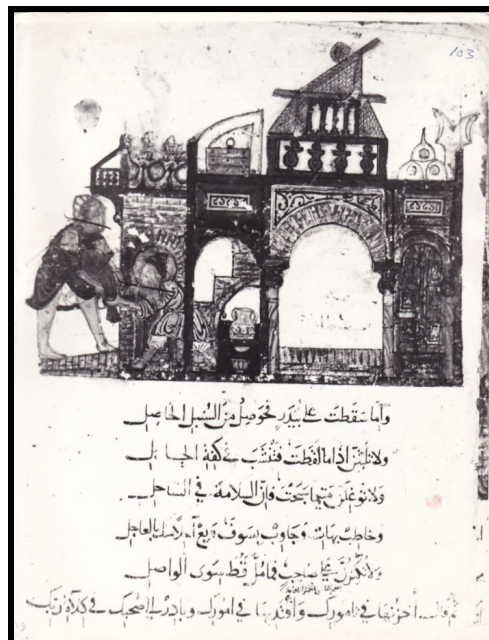 103
وإما سقطت على بيدر فحوصل من السنبل الحاصل
ولا تلبثن إذا ما لقطت فتنشب في كفة الحابل
ولا توغلن متى ما سبحت فإن السلامة في الساحل
وخاطب بهات وجاوب بسوف وبع آجلا منك بالعاجل
ولا تكثرن على صاحب فما مل قط سوى الواصل
ثم قال اخزنها في تامورك واقتد بها في أمورك وبادر إلى صحبك في كلاءة ربك